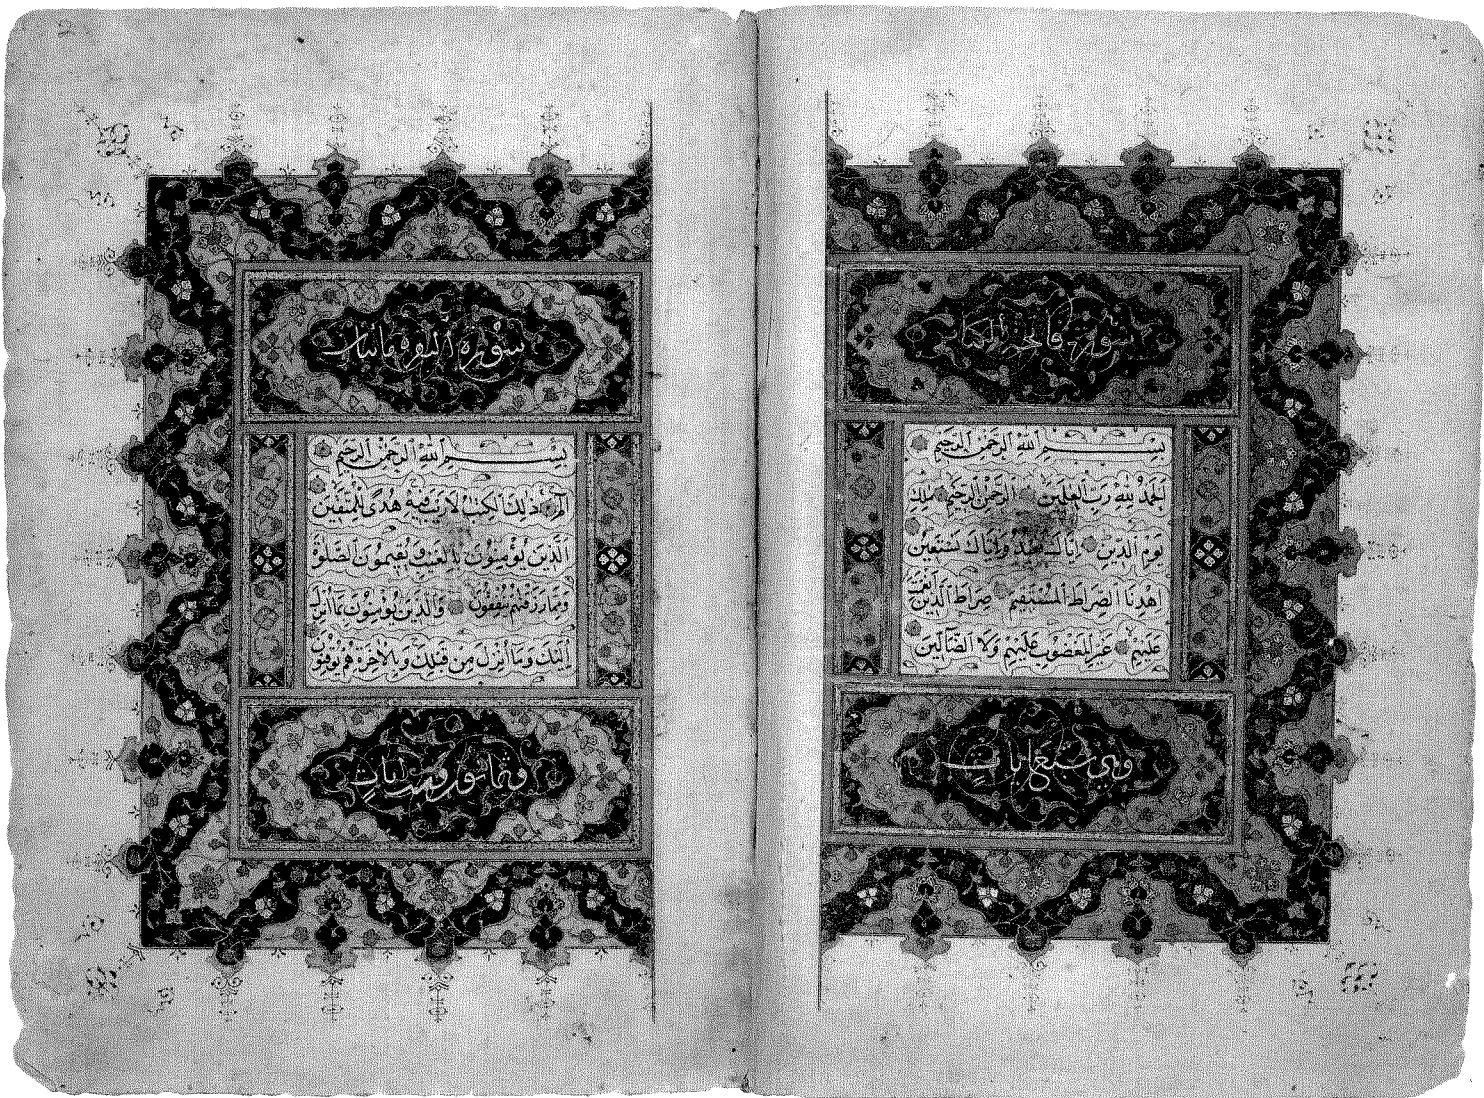 سورة فاتحة الكتاب
بِسْمِ اللهِ الرَّحْمٰنِ الرَّحِيمِ
اَلْحَمْدُ لِلهِ رَبِّ الْعٰلَمِينَ الرَّحْمٰنِ الرَّحِيمِ مٰلِكِ
يَوْمِ الدِّينِ اِيَّاكَ نَعْبُدُ وَاِيَّاكَ نَسْتَعِينُ
اِهْدِنَا الصِّرَاطَ الْمُسْتَقِيمَ صِرَاطَ الَّذِينَ اَنْعَمْتَ
عَلَيْهِمْ غَيْرِ الْمَغْضُوبِ عَلَيْهِمْ وَلَا الضَّالِّينَ
وهي سبع ايات
سورة البقرة مائتان
بِسْمِ اللهِ الرَّحْمٰنِ الرَّحِيمِ
الٓمٓ ذٰلِكَ الْكِتٰبُ لَا رَيْبَ فِيهِ هُدًى لِلْمُتَّقِينَ
اَلَّذِينَ يُؤْمِنُونَ بِالْغَيْبِ وَيُقِيمُونَ الصَّلٰوةَ
وَمِمَّا رَزَقْنٰهُمْ يُنْفِقُونَ وَالَّذِينَ يُؤْمِنُونَ بِمَا اُنْزِلَ
اِلَيْكَ وَمَا اُنْزِلَ مِنْ قَبْلِكَ وَبِالْاٰخِرَةِ هُمْ يُوقِنُونَ
وثمانون وست ايات